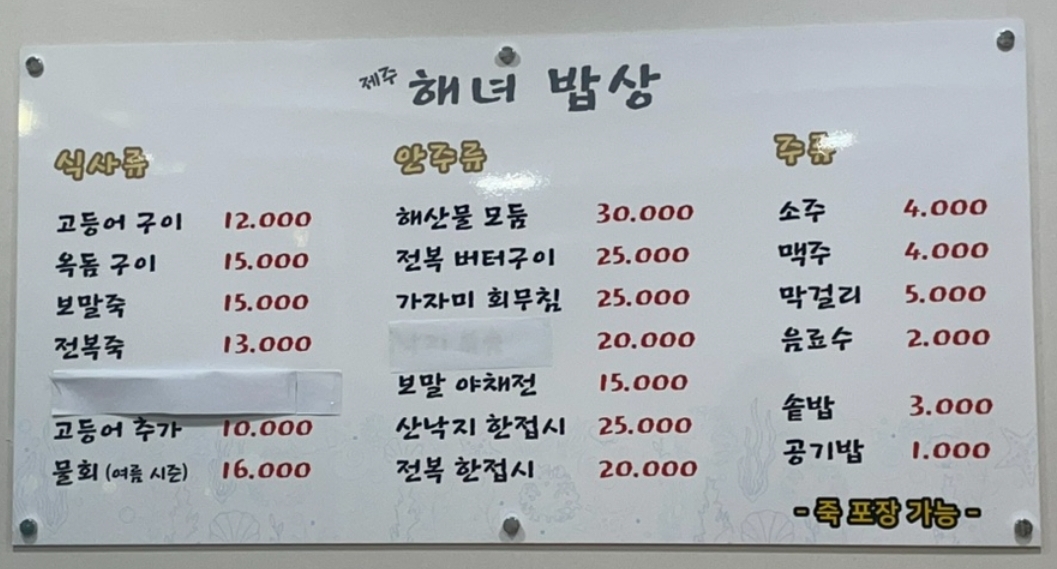 제주 해녀 밥상
식사류
고등어 구이 12.000
옥돔 구이 15.000
보말죽 15.000
전복죽 13.000
고등어 추가 10.000
물회 (여름 시즌) 16.000
안주류
해산물 모둠 30.000
전복 버터구이 25.000
가자미 회무침 25.000
20.000
보말 야채전 15.000
산낙지 한접시 25.000
전복 한접시 20.000
주류
소주 4.000
맥주 4.000
막걸리 5.000
음료수 2.000
솥밥 3.000
공기밥 1.000
- 죽 포장 가능 -